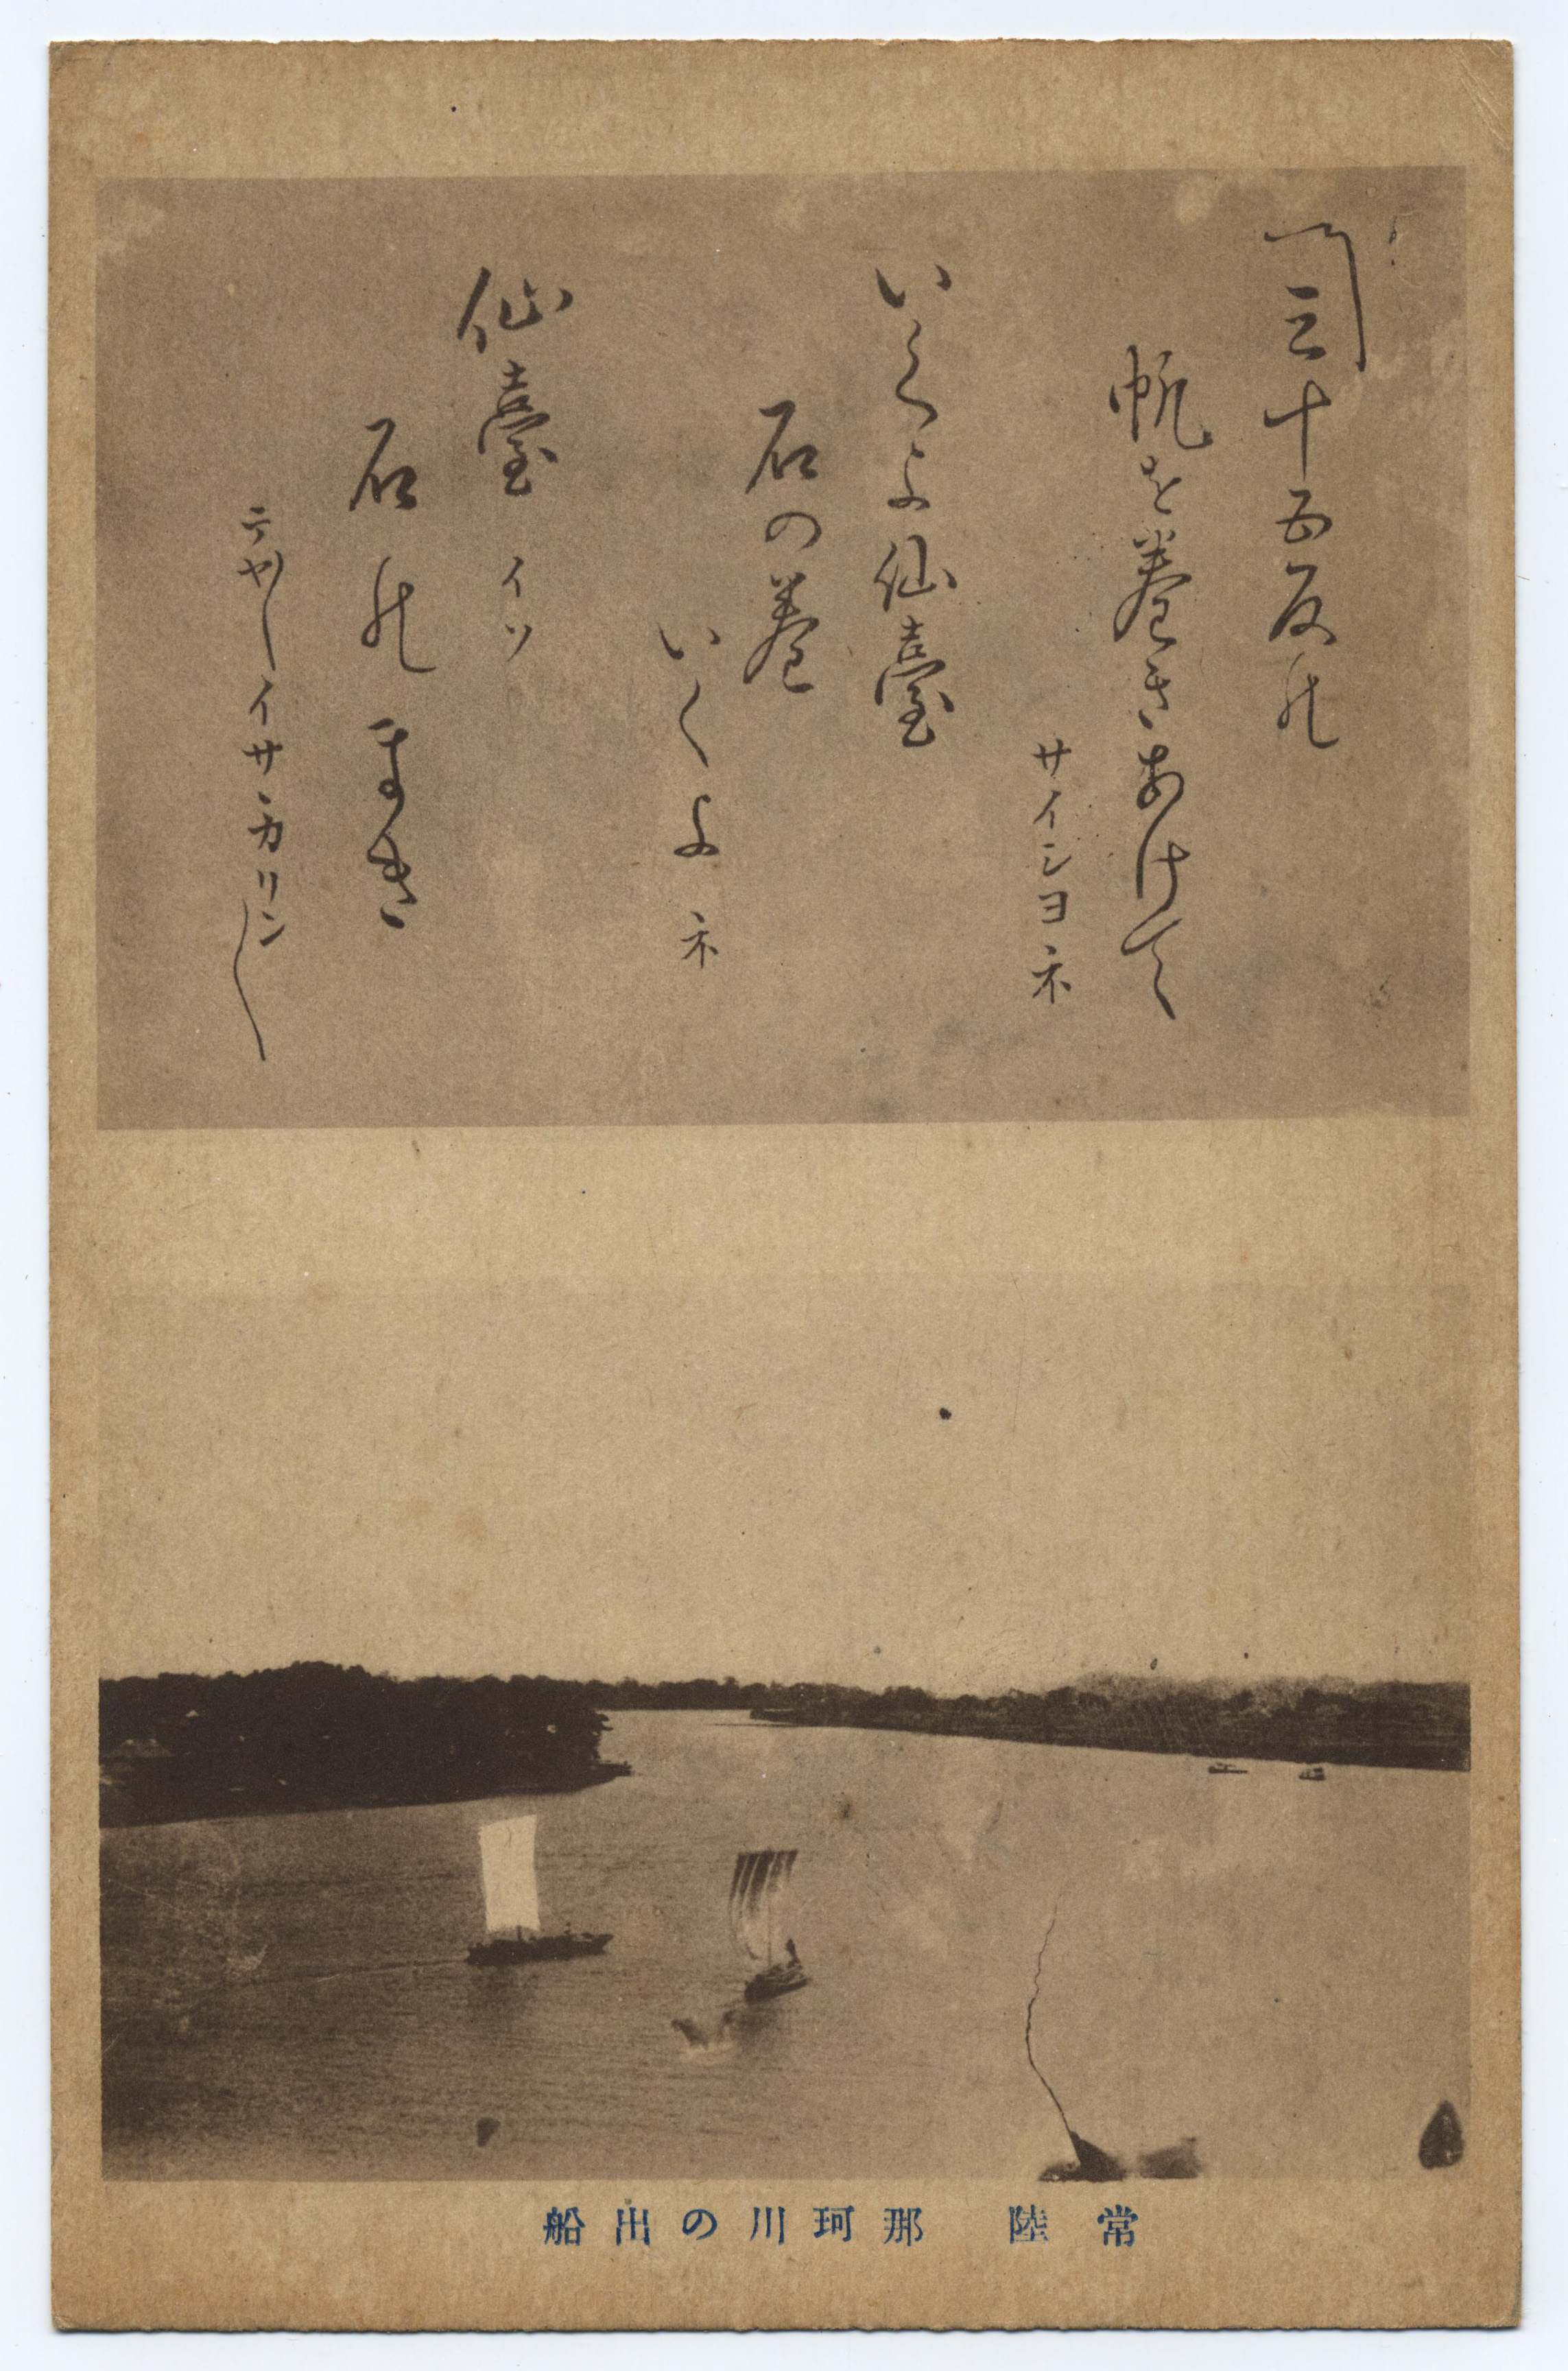 〽三十五反の
帆を巻きあけて
サイシヨネ
いくよ仙臺
石の巻
いくよネ
仙臺イツ
石のまき
イサヽカリン〳〵
常陸 那珂川の出船